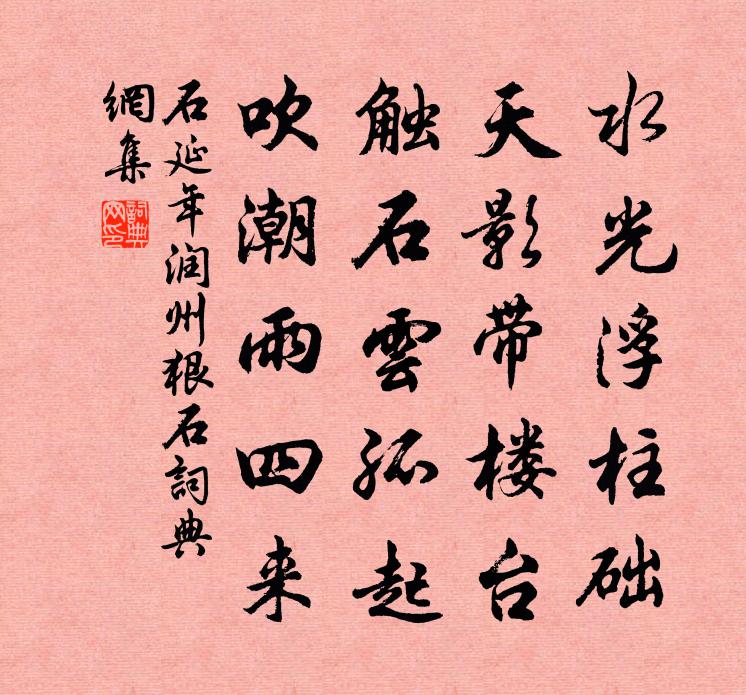 水光浮柱础
天影带楼台
触石雲孤起
吹潮雨四来
石延年润州狠石詞典
網集
詞典网印